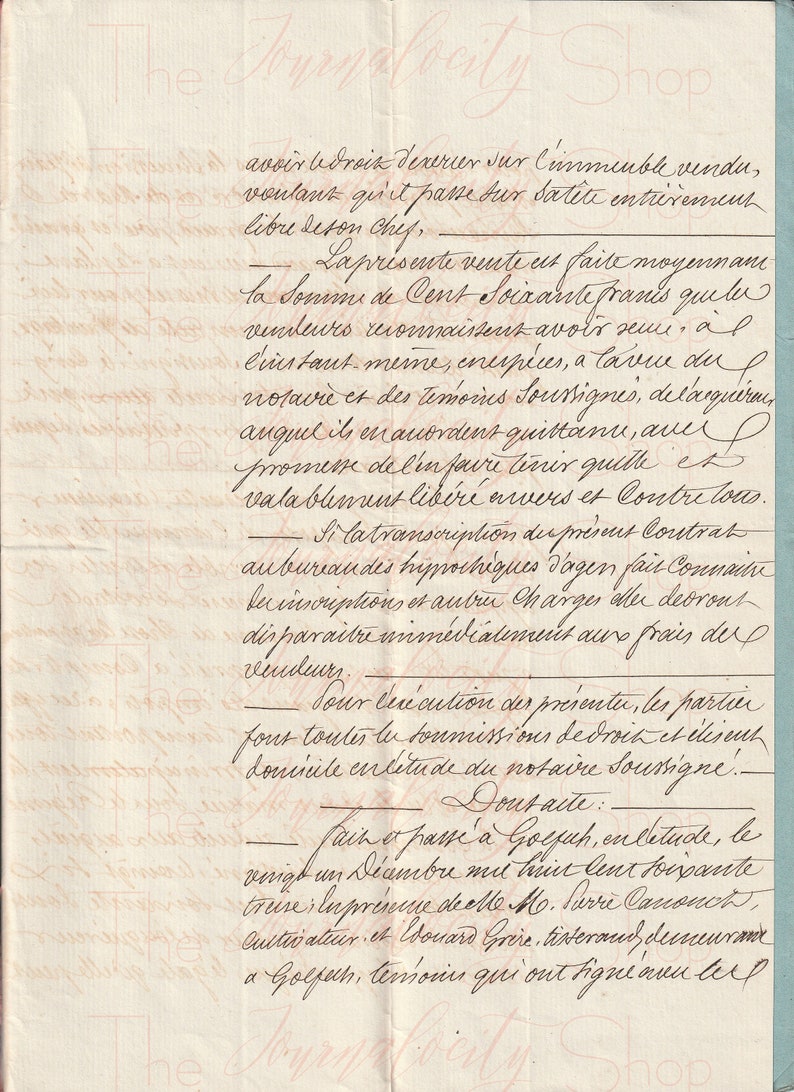 The Journalocity Shop
avoir le droit d'exercer sur l'immeuble vendu,
voulant qu'il passe sur sa tête entièrement
libre de son chef.
La présente vente est faite moyennant
la somme de Cent Soixante francs que les
vendeurs reconnaissent avoir reçue, à
l'instant-même, en espèces, à la vue du
notaire et des témoins soussignés, de l'acquéreur,
auquel ils en accordent quittance, avec
promesse de l'en faire tenir quitte et
valablement libéré envers et contre tous.
Si la transcription du présent Contrat
au bureau des hypothèques d'agen fait connaître
des inscriptions et autres charges elles devront
disparaître immédiatement aux frais des
vendeurs.
Pour l'exécution des présentes, les parties
font toutes les soumissions de droit et élisent
domicile en l'étude du notaire soussigné.
Dont acte :
fait et passé à Golfech, en l'étude, le
vingt un Décembre mil huit cent soixante
treize, En présence de MM. Pierre
Cultivateur, et Edouard Grère, tisserand, demeurant
à Golfech, témoins qui ont signé avec les
The Journalocity Shop